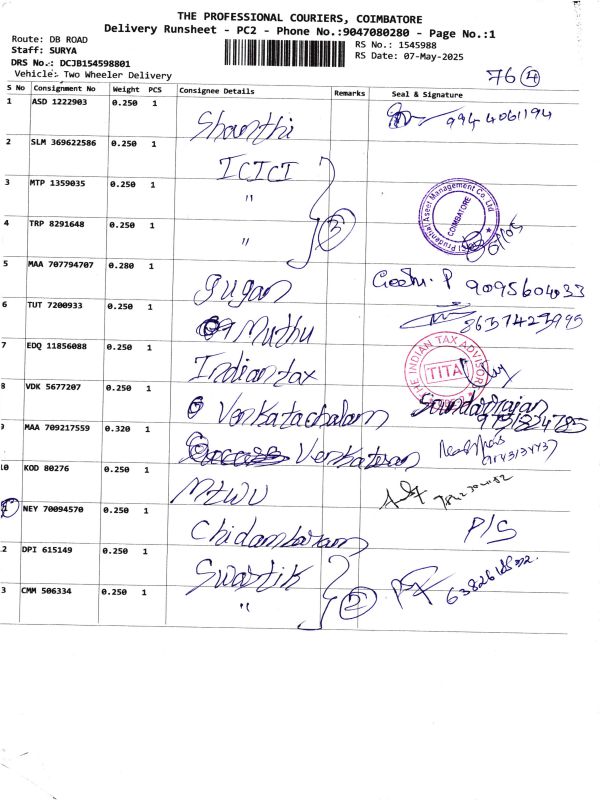 THE PROFESSIONAL COURIERS, COIMBATORE
Delivery Runsheet - PC2 - Phone No.:9047080280 - Page No.:1
Route: DB ROAD
Staff: SURYA
DRS No.: DCJB154598801
Vehicle: Two Wheeler Delivery
RS No.: 1545988
RS Date: 07-May-2025
76 4
S No Consignment No Weight PCS Consignee Details Remarks Seal & Signature
1 ASD 1222903 0.250 1 Shanthi 994 4061194
2 SLM 369622586 0.250 1 ICICI
3 MTP 1359035 0.250 1 "
4 TRP 8291648 0.250 1 " 3
Prudential Asset Management Co Ltd
COIMBATORE
5 MAA 707794707 0.280 1 Gugan Geetha. P 9095604033
6 TUT 7200933 0.250 1 Muthu 8637423995
7 EDQ 11856088 0.250 1 Indian tax
THE INDIAN TAX ADVISOR
TITA
8 VDK 5677207 0.250 1 Venkatachalam Soundarrajan
9751824785
9 MAA 709217559 0.320 1 Venkatesan
10 KOD 80276 0.250 1
NEY 70094570 0.250 1 Chidambaram P/S
2 DPI 615149 0.250 1 Swastik
3 CMM 506334 0.250 1 " 2